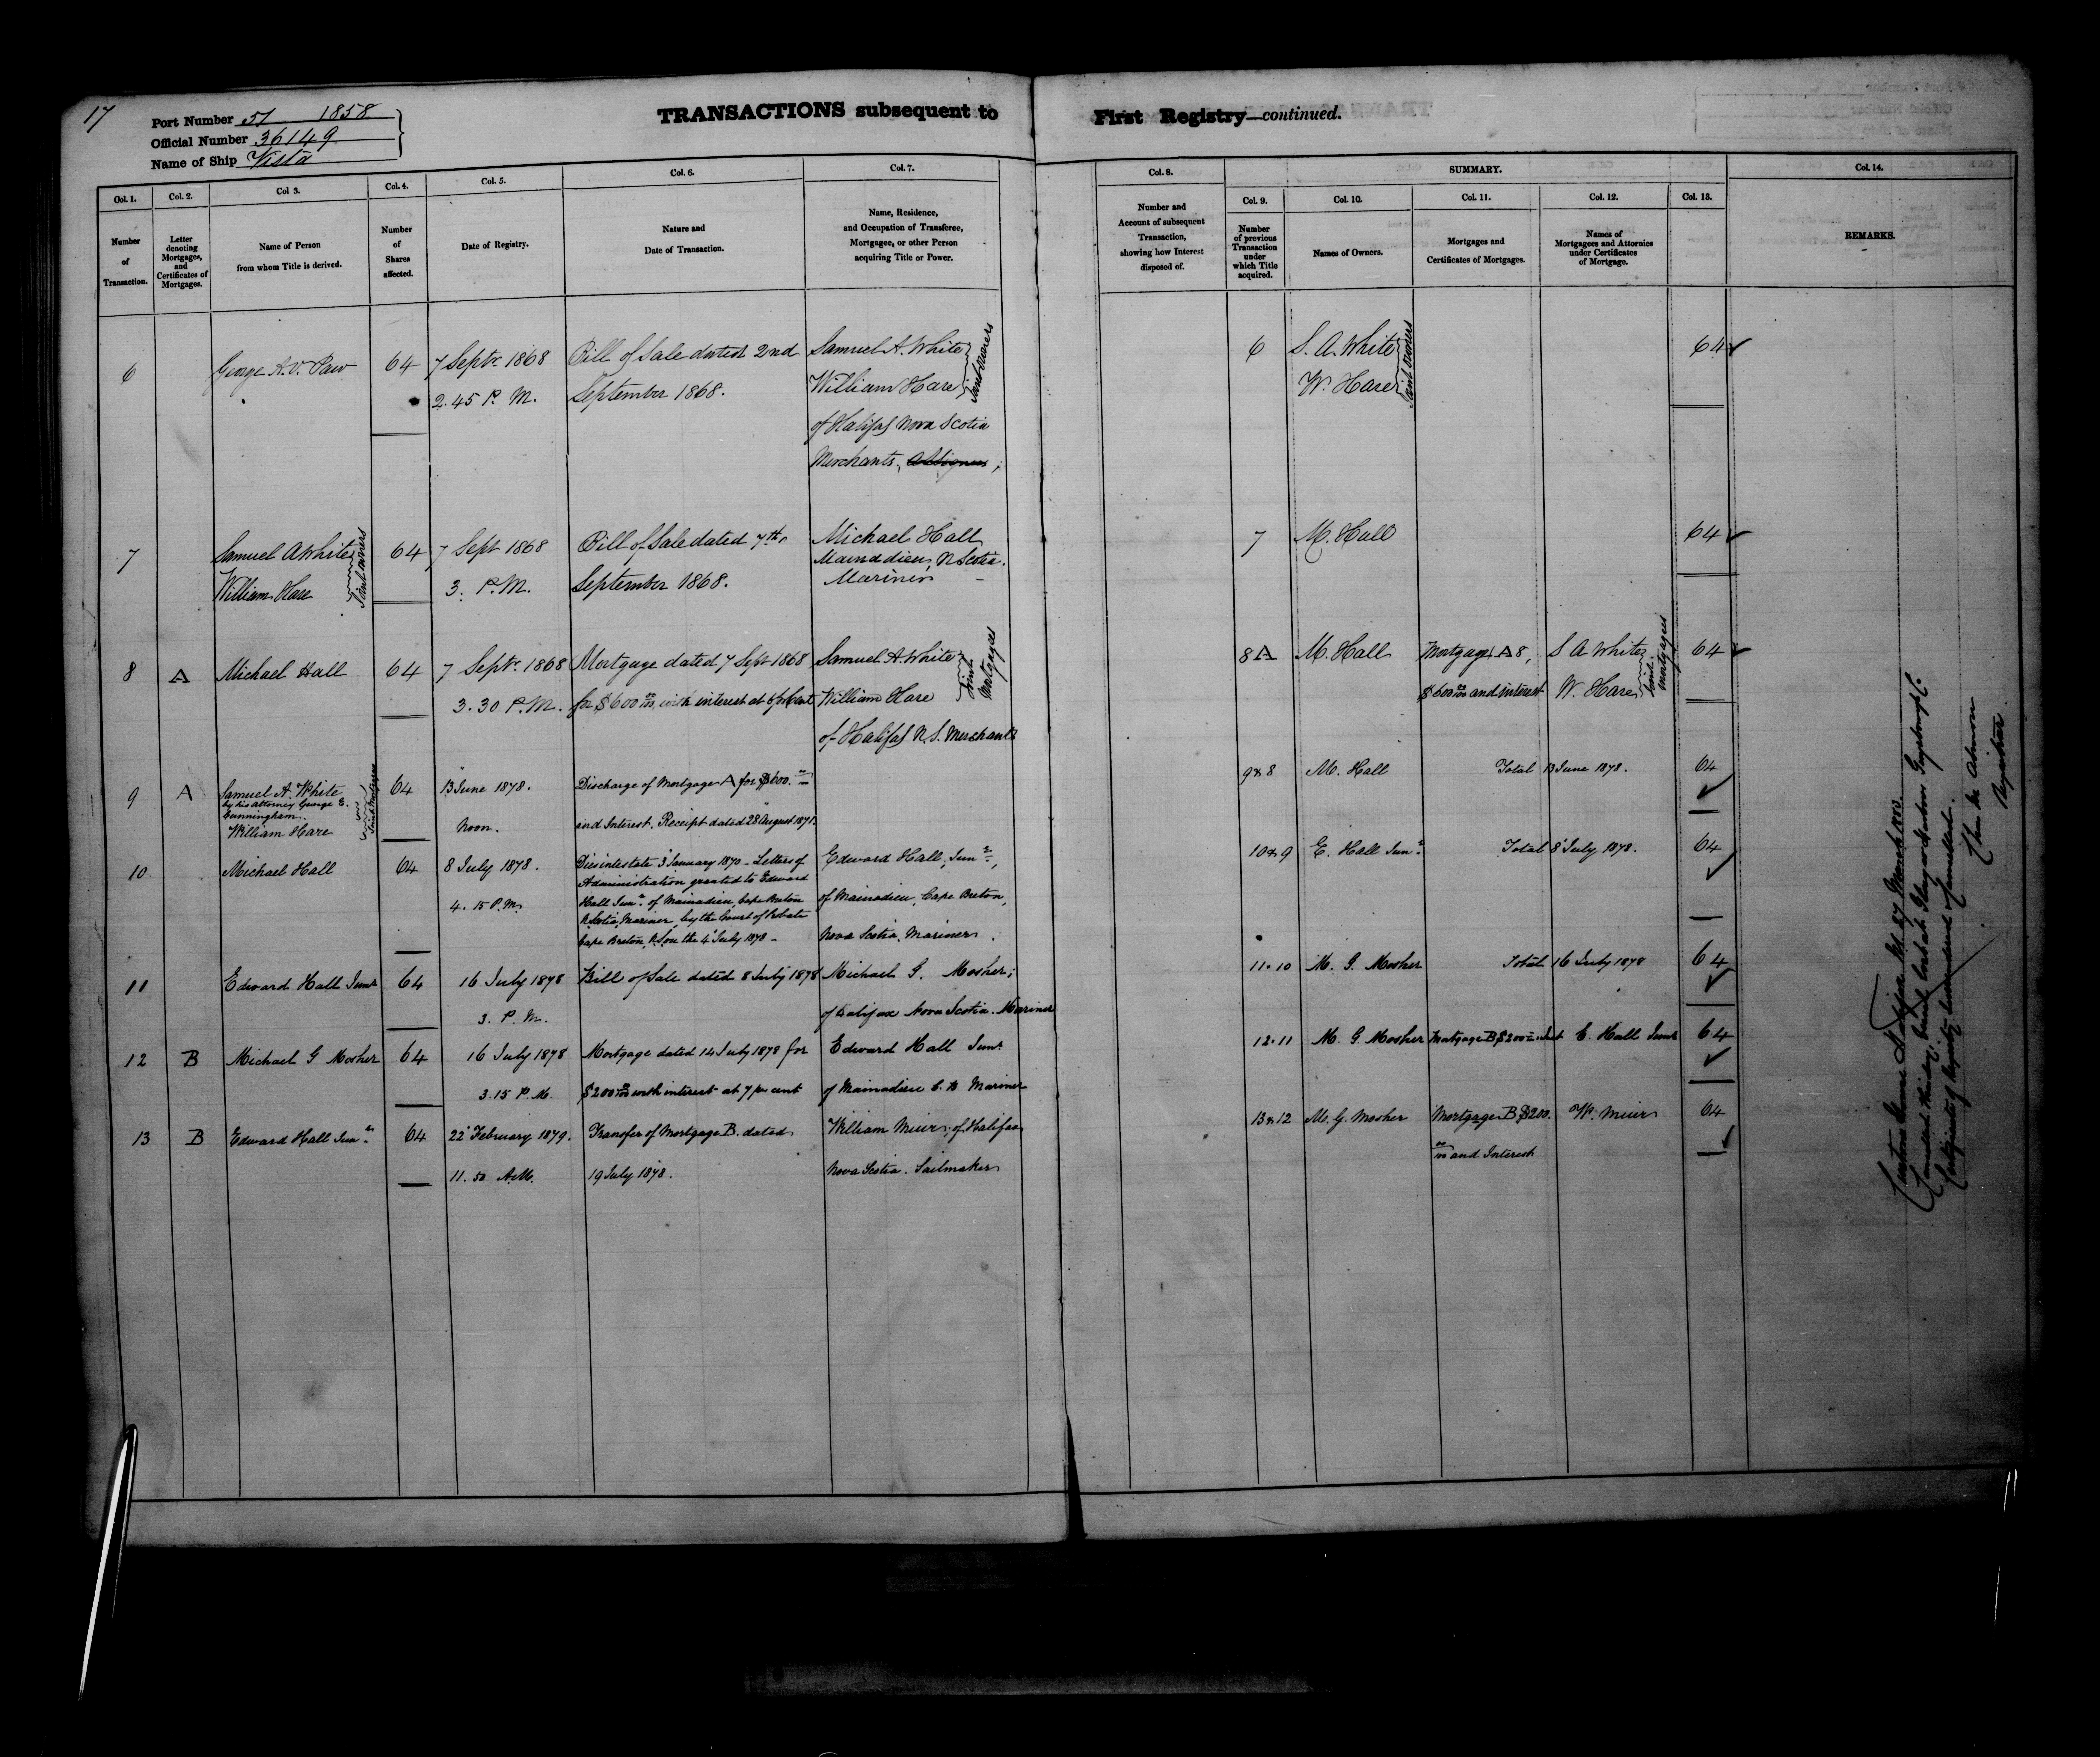 17
Port Number 51 1858
Official Number 36149
Name of Ship Vesta
TRANSACTIONS subsequent to First Registry—continued.
Col. 1.
Number
of
Transaction.
Col. 2.
Letter
denoting
Mortgages,
and
Certificates of
Mortgages.
Col 3.
Name of Person
from whom Title is derived.
Col. 4.
Number
of
Shares
affected.
Col. 5.
Date of Registry.
Col. 6.
Nature and
Date of Transaction.
Col. 7.
Name, Residence,
and Occupation of Transferee,
Mortgagee, or other Person
acquiring Title or Power.
Col. 8.
Number and
Account of subsequent
Transaction,
showing how Interest
disposed of.
SUMMARY.
Col. 9.
Number
of previous
Transaction
under
which Title
acquired.
Col. 10.
Names of Owners.
Col. 11.
Mortgages and
Certificates of Mortgages.
Col. 12.
Names of
Mortgagees and Attornies
under Certificates
of Mortgage.
Col. 13.
Col. 14.
REMARKS.
6
George A.V. Paw
64
7 Septr 1868
2.45 P. M.
Bill of Sale dated 2nd
September 1868.
Samuel A. White
William Hare
Joint owners
of Halifax Nova Scotia
Merchants,
6
S. A. White
W. Hare
Joint owners
64
7
Samuel A White
William Hare
Joint owners
64
7 Sept 1868
3. P.M.
Bill of Sale dated 7th
September 1868.
Michael Hall
Mainadieu, N Scotia.
Mariner
7
M. Hall
64
8
A
Michael Hall
64
7 Septr 1868
3.30 P.M.
Mortgage dated 7 Sept 1868
for $600 00/100 with interest at 6 pr Cent
Samuel A. White
William Hare
Joint Mortgagees
of Halifax N.S. Merchants
8 A
M. Hall
Mortgage A 8,
$600 00/100 and interest
S A White
W. Hare
Joint mortgagees
64
9
A
Samuel A. White
by his attorney George E.
Cunningham.
William Hare
Joint Mortgagees
64
13 June 1878.
Noon.
Discharge of Mortgage A for $600. 00/100
and Interest. Receipt dated 28 August 1871.
9 & 8
M. Hall
Total 13 June 1878.
64
10
Michael Hall
64
8 July 1878.
4. 15 P.M.
Died intestate 3 January 1870 - Letters of
Administration granted to Edward
Hall Junr of Mainadieu, Cape Breton
N. Scotia, Mariner, by the Court of Probate
Cape Breton, N.S on the 4 July 1878 -
Edward Hall, Junr,
of Mainadieu, Cape Breton,
Nova Scotia. Mariner.
10 & 9
E. Hall Junr
Total 8 July 1878.
64
11
Edward Hall Junr
64
16 July 1878
3. P. M.
Bill of Sale dated 8 July 1878
Michael G. Mosher;
of Halifax Nova Scotia. Mariner
11.10
M. G. Mosher
Total 16 July 1878
64
12
B
Michael G Mosher
64
16 July 1878
3.15 P. M.
Mortgage dated 14 July 1878 for
$200 00/100 with interest at 7 per cent
Edward Hall Junr
of Mainadieu C. B Mariner
12.11
M. G. Mosher
Mortgage B $200 00/100 Int
E. Hall Junr
64
13
B
Edward Hall Junr
64
22 February 1879.
11. 50 A.M.
Transfer of Mortgage B. dated
19 July 1878.
William Muir; of Halifax
Nova Scotia. Sailmaker
13 & 12
M. G. Mosher
Mortgage B $200.
00/100 and Interest
W. Muir
64
Custom House Halifax NS 27 March 1880.
Cancelled this day, being lost at
Certificate of Registry
Registrar.